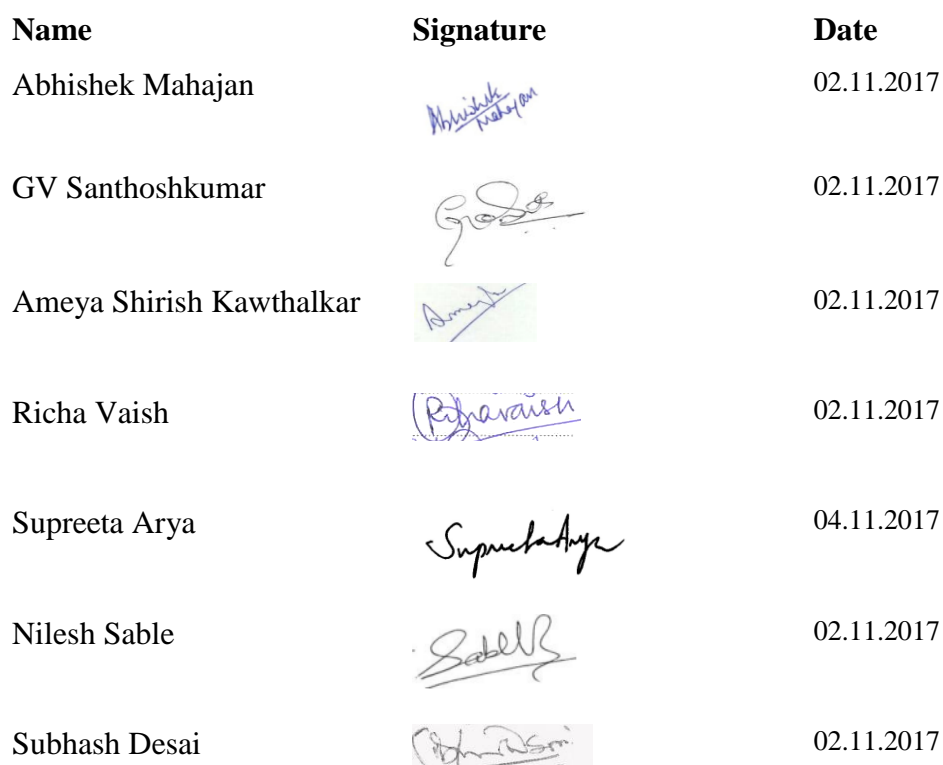 Name Signature Date
Abhishek Mahajan Abhishek Mahajan 02.11.2017
GV Santhoshkumar 02.11.2017
Ameya Shirish Kawthalkar Ameya 02.11.2017
Richa Vaish Richavaish 02.11.2017
Supreeta Arya Supreeta Arya 04.11.2017
Nilesh Sable Sable 02.11.2017
Subhash Desai 02.11.2017